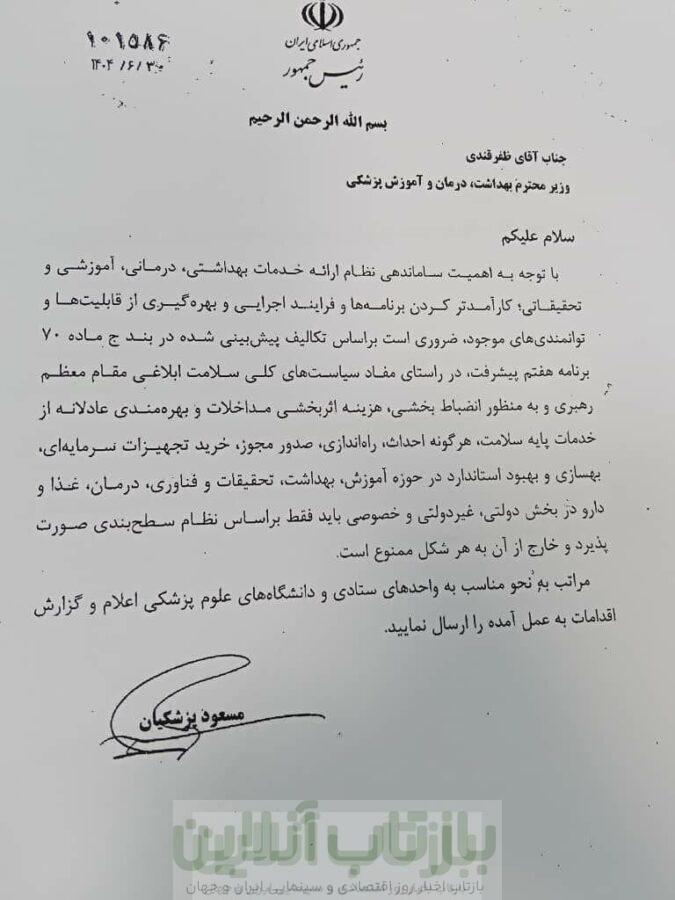 ۱۰۱۵۸۶
۱۴۰۴/۶/۳۰
جمهوری اسلامی ایران
رئیس جمهور
بسم الله الرحمن الرحیم
جناب آقای ظفرقندی
وزیر محترم بهداشت، درمان و آموزش پزشکی
سلام علیکم
با توجه به اهمیت ساماندهی نظام ارائه خدمات بهداشتی، درمانی، آموزشی و
تحقیقاتی؛ کارآمدتر کردن برنامه‌ها و فرایند اجرایی و بهره‌گیری از قابلیت‌ها و
توانمندی‌های موجود، ضروری است براساس تکالیف پیش‌بینی شده در بند ج ماده ۷۰
برنامه هفتم پیشرفت، در راستای مفاد سیاست‌های کلی سلامت ابلاغی مقام معظم
رهبری و به منظور انضباط بخشی، هزینه اثربخشی مداخلات و بهره‌مندی عادلانه از
خدمات پایه سلامت، هرگونه احداث، راه‌اندازی، صدور مجوز، خرید تجهیزات سرمایه‌ای،
بهسازی و بهبود استاندارد در حوزه آموزش، بهداشت، تحقیقات و فناوری، درمان، غذا و
دارو در بخش دولتی، غیردولتی و خصوصی باید فقط براساس نظام سطح‌بندی صورت
پذیرد و خارج از آن به هر شکل ممنوع است.
مراتب به نحو مناسب به واحدهای ستادی و دانشگاه‌های علوم پزشکی اعلام و گزارش
اقدامات به عمل آمده را ارسال نمایید.
مسعود پزشکیان
بازتاب آنلاین
بازتاب اخبار روز اقتصادی و سینمایی ایران و جهان